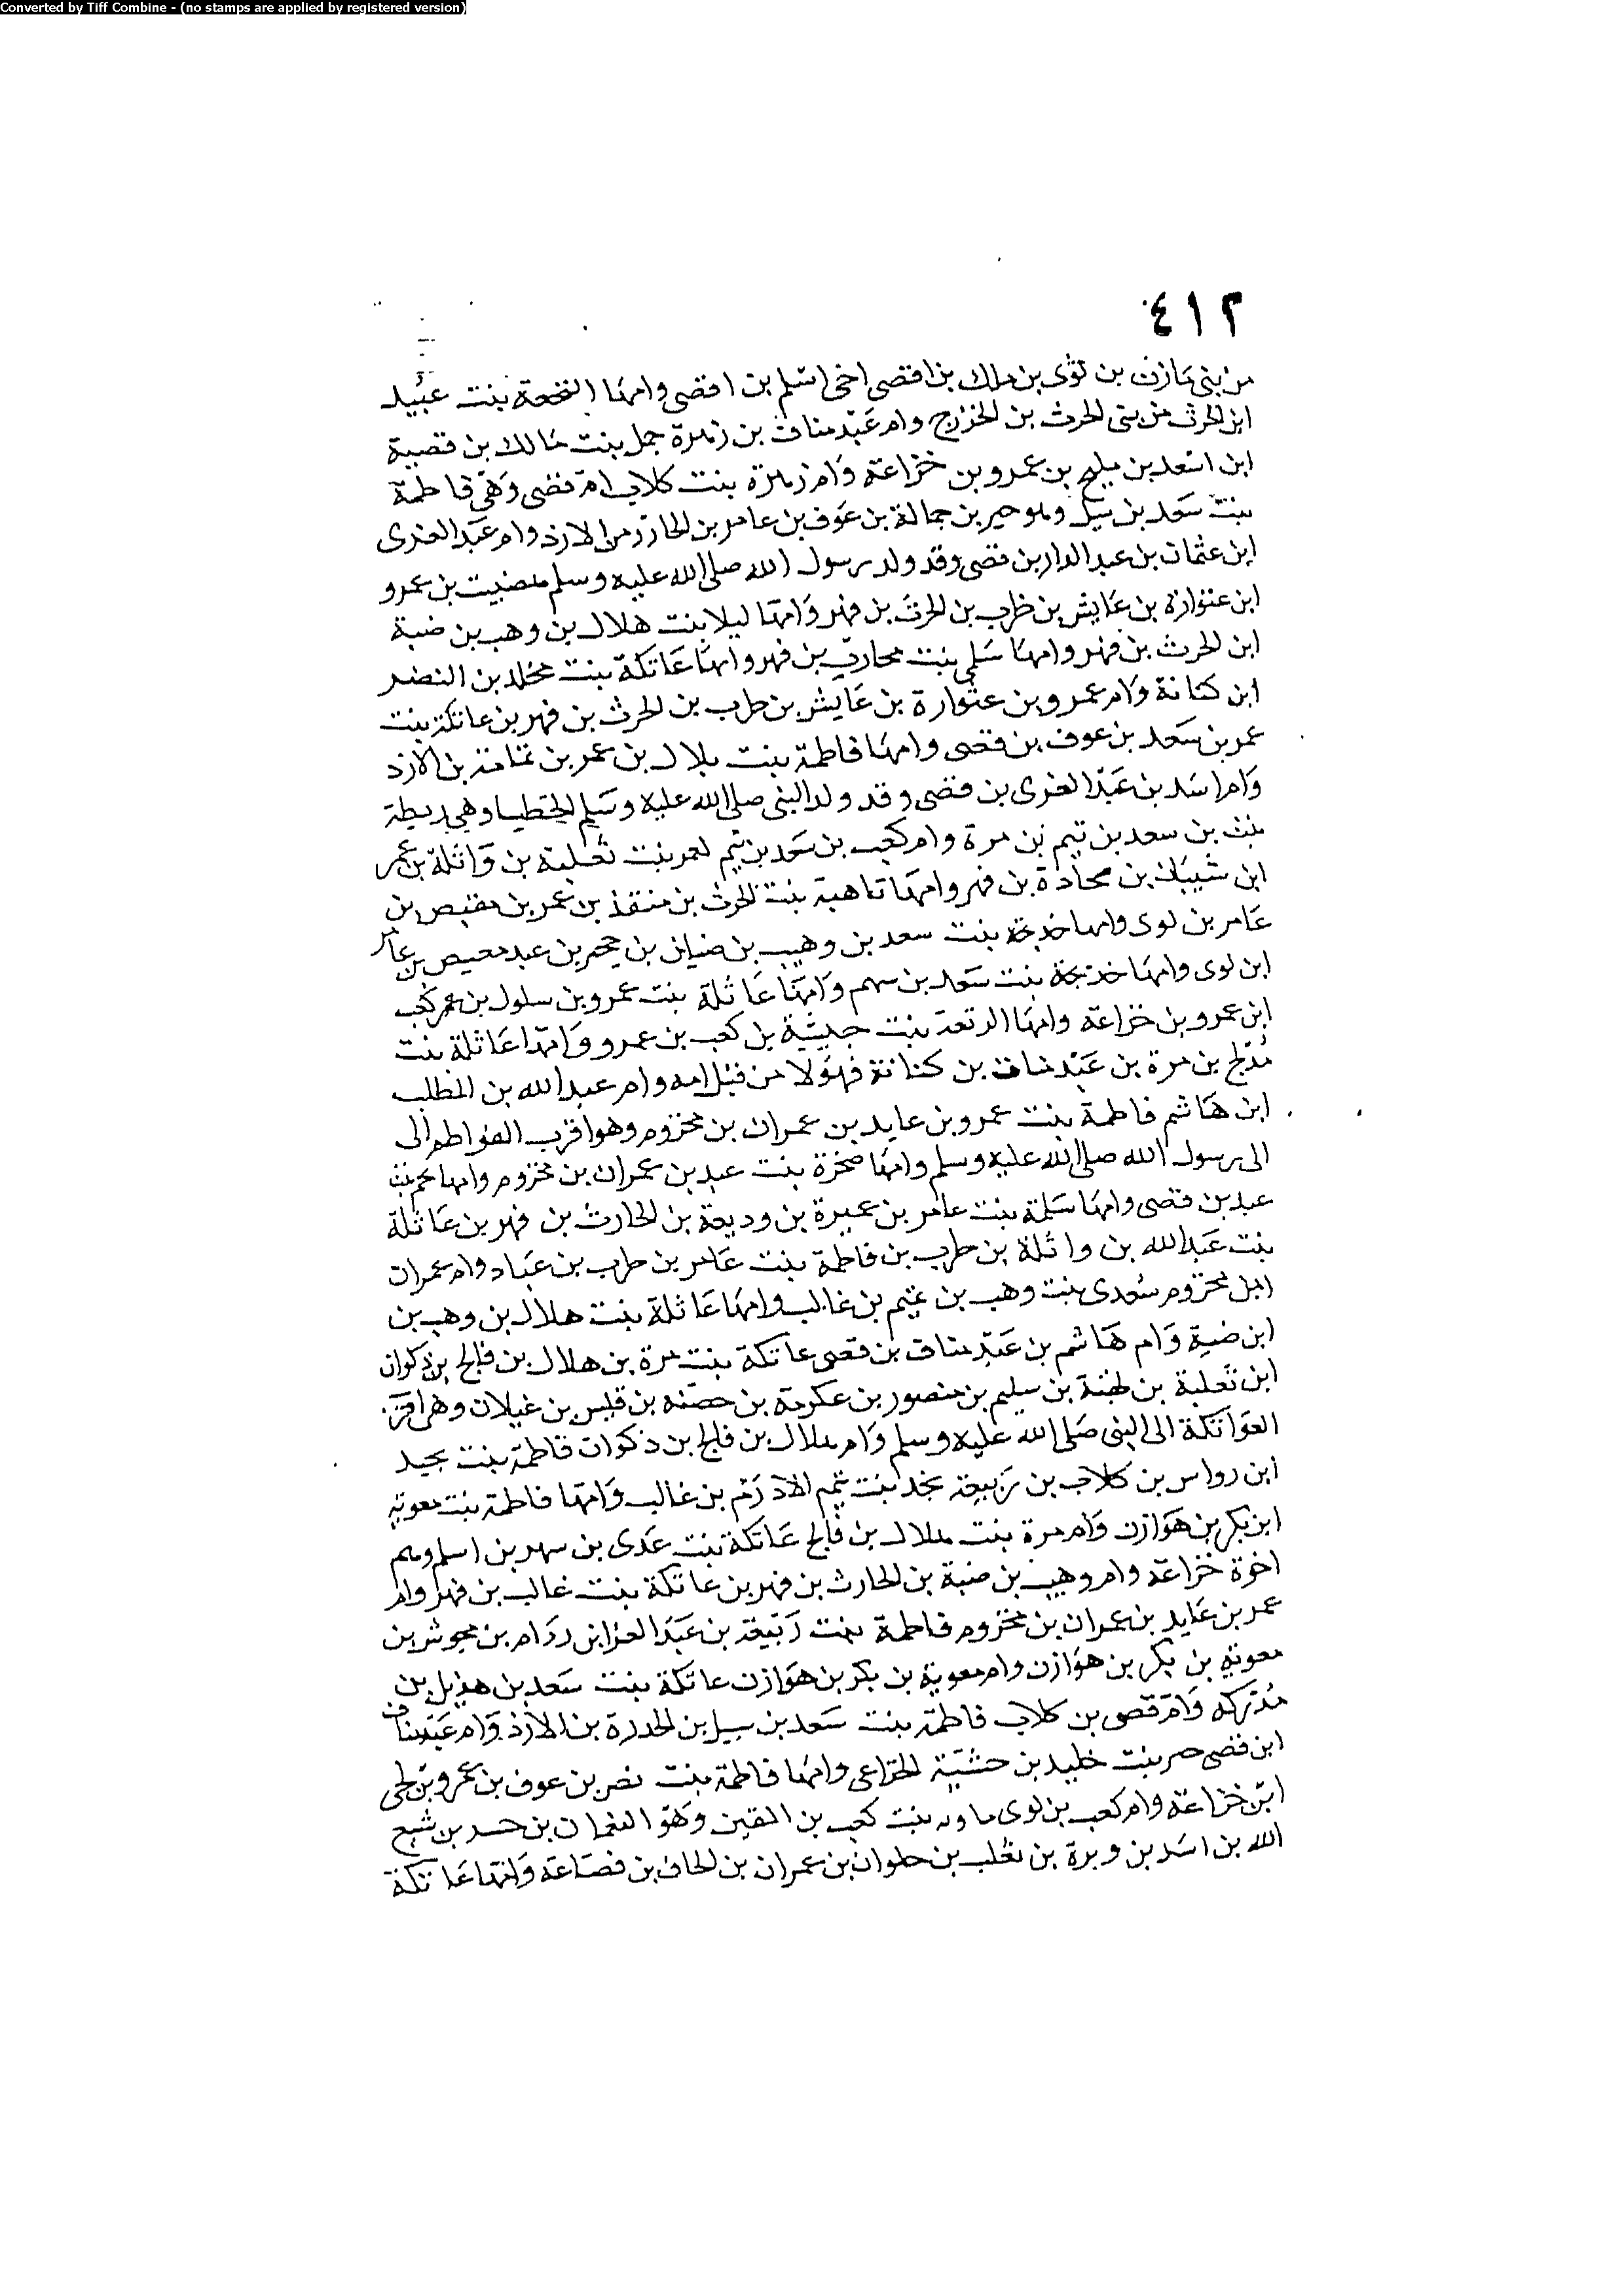 Converted by Tiff Combine - (no stamps are applied by registered version)
٤١٢
من بنى مازن بن لؤى بن ملك بن افصى اخى اسلم بن افصى وامها النخعة بنت عبيد
ابن الحرث من بنى الحرث بن الخزرج وام عبد مناف بن زهرة جمل بنت مالك بن قصية
ابن اسعد بن مليح بن عمرو بن خزاعة وام زهرة بنت كلاب ام قصى وهى فاطمة
بنت سعد بن سيل وهو حير بن جمالة بن عوف بن عامر بن الحازر من الازد وام عبد العزى
ابن عثمان بن عبد الدار بن قصى وقد ولد رسول الله صلى الله عليه وسلم بن عمرو
ابن عتوارة بن عايش بن ظرب بن الحرث بن فهر وامها ليلا بنت هلال بن وهب بن ضبة
ابن الحرث بن فهر وامها سلمى بنت محارب بن فهر وامها عاتكة بنت مخلد بن النضر
ابن كنانة وام عمرو بن عتوارة بن عايش بن طرب بن الحرث بن فهر بن عاتكة بنت
عمر بن سعد بن عوف بن قصى وامها فاطمة بنت بلال بن عمر بن ثمامة بن الازد
وام اسد بن عبد العزى بن قصى وقد ولد النبى صلى الله عليه وسلم الخطيا وهى ريطة
بنت بن سعد بن تيم بن مرة وام كعب بن سعد بن تيم لعمر بنت ثعلبة بن واثلة بن عمر
ابن شيبان بن محادة بن فهر وامها تاهبة بنت الحرث بن منقذ بن عمر بن مقيص بن
عامر بن لوى وامها خديجة بنت سعد بن وهيب بن ضيان بن حجر بن عبد معيص بن عامر
ابن لوى وامها خديجة بنت سعد بن سهم وامها عاثلة بنت عمرو بن سلول بن عمر كعب
ابن عمرو بن خزاعة وامها الرتعة بنت حبشية بن كعب بن عمرو وامها عاثلة بنت
مدلج بن مرة بن عبد مناف بن كنانة فهؤلا من قبل امه وام عبد الله بن المطلب
ابن هاشم فاطمة بنت عمرو بن عايد بن عمران بن مخزوم وهو اقرب الفواطم الى
الى رسول الله صلى الله عليه وسلم وامها صخرة بنت عبد بن عمران بن مخزوم وامها تخمر بنت
عبد بن قصى وامها سلمة بنت عامر بن عميرة بن وديعة بن الحارث بن فهر بن عاثلة
بنت عبد الله بن واثلة بن طرب بن فاطمة بنت عامر بن طرب بن عباد وام عمران
ابن مخزوم سعدى بنت وهب بن غنيم بن غالب وامها عاثلة بنت هلال بن وهب بن
ابن ضبة وام هاشم بن عبد مناف بن قصى عاتكة بنت مرة بن هلال بن فالح بن ذكوان
ابن ثعلبة بن لهثة بن سليم بن منصور بن عكرمة بن حصنه بن قيس بن غيلان وهى اقرب
العواتكة الى النبى صلى الله عليه وسلم وام هلال بن فالح بن ذكوان فاطمة بنت بجيد
ابن رواس بن كلاب بن ربيعة بخد بنت تيم الادرم بن غالب وامها فاطمة بنت معوية
ابن بكر بن هوازن وام مرة بنت هلال بن فالح عاتكة بنت عدى بن سهر بن اسلم وهم
اخوة خزاعة وام وهيب بن ضبة بن الحارث بن فهر بن عاتكة بنت غالب بن فهر وام
عمر بن عايد بن عمران بن مخزوم فاطمة بنت ربيعة بن عبد العزا بن ردام بن جوش بن
معوية بن بكر بن هوازن وام معوية بن بكر بن هوازن عاتكة بنت سعد بن هذيل بن
مدركه وام قصى بن كلاب فاطمة بنت سعد بن سيل بن الحدرة بن الازد وام عبد مناف
ابن قصى حر بنت خليد بن حشية الخزاعى وامها فاطمة بنت نصر بن عوف بن عمرو بن لحى
ابن خزاعة وام كعب بن لوى ماويه بنت كعب بن القين وهو النعمان بن حسد بن شيع
الله بن اسد بن وبرة بن ثعلب بن حلوان بن عمران بن الحاف بن قضاعة وامها عاتكة